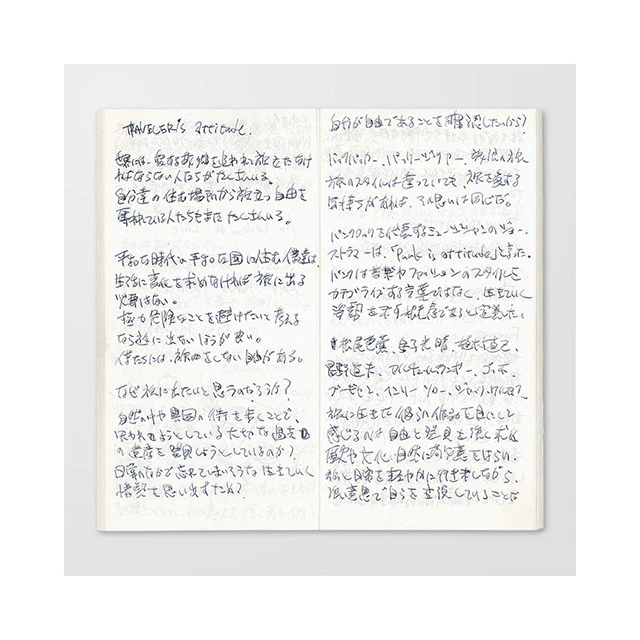 TRAVELER's attitude.
世界には、愛する故郷を追われ旅立たなけ
ればならない人たちがたくさんいる。
自分達の住む場所から旅立つ自由を
奪われている人たちもまたたくさんいる。
平和な時代の平和な国に住む僕達は、
生活に変化を求めなければ旅に出る
必要はない。
極力危険なことを避けたいと考える
なら旅に出ないほうが良い。
僕たちには、旅をしない自由がある。
なぜ旅に出たいと思うのだろうか?
自然の中や異国の街を歩くことで、
失われようとしている大切な過去
の遺産を発見しようとしているのか?
日常のなかで忘れてしまいそうな生きていく
情熱を思い出すため?
自分が自由であることを確認したいから?
バックパッカー、パッケージツアー、旅
旅のスタイルは違っていても、旅を愛する
気持ちがあれば、その思いは同じだ。
パンクロックを代表するミュージシャンのジョー・
ストラマーは、「Punk is attitude」と言った。
パンクは音楽やファッションのスタイルを
カテゴライズする言葉ではなく、生きていく
姿勢を示す態度であると定義した。
松尾芭蕉、金子光晴、植村直己、
星野道夫、ブルース・チャトウィン、ゴッホ、
ゴーギャン、ヘンリー・ソロー、ジャック・ケルアック
旅に生きた彼らの作品を目にして
感じるのは自由と発見を強く求め
歴史や文化、自然に敬意をはらい、
旅と日常を軽やかに行き来しながら、
強い意思で自らを表現していることだ